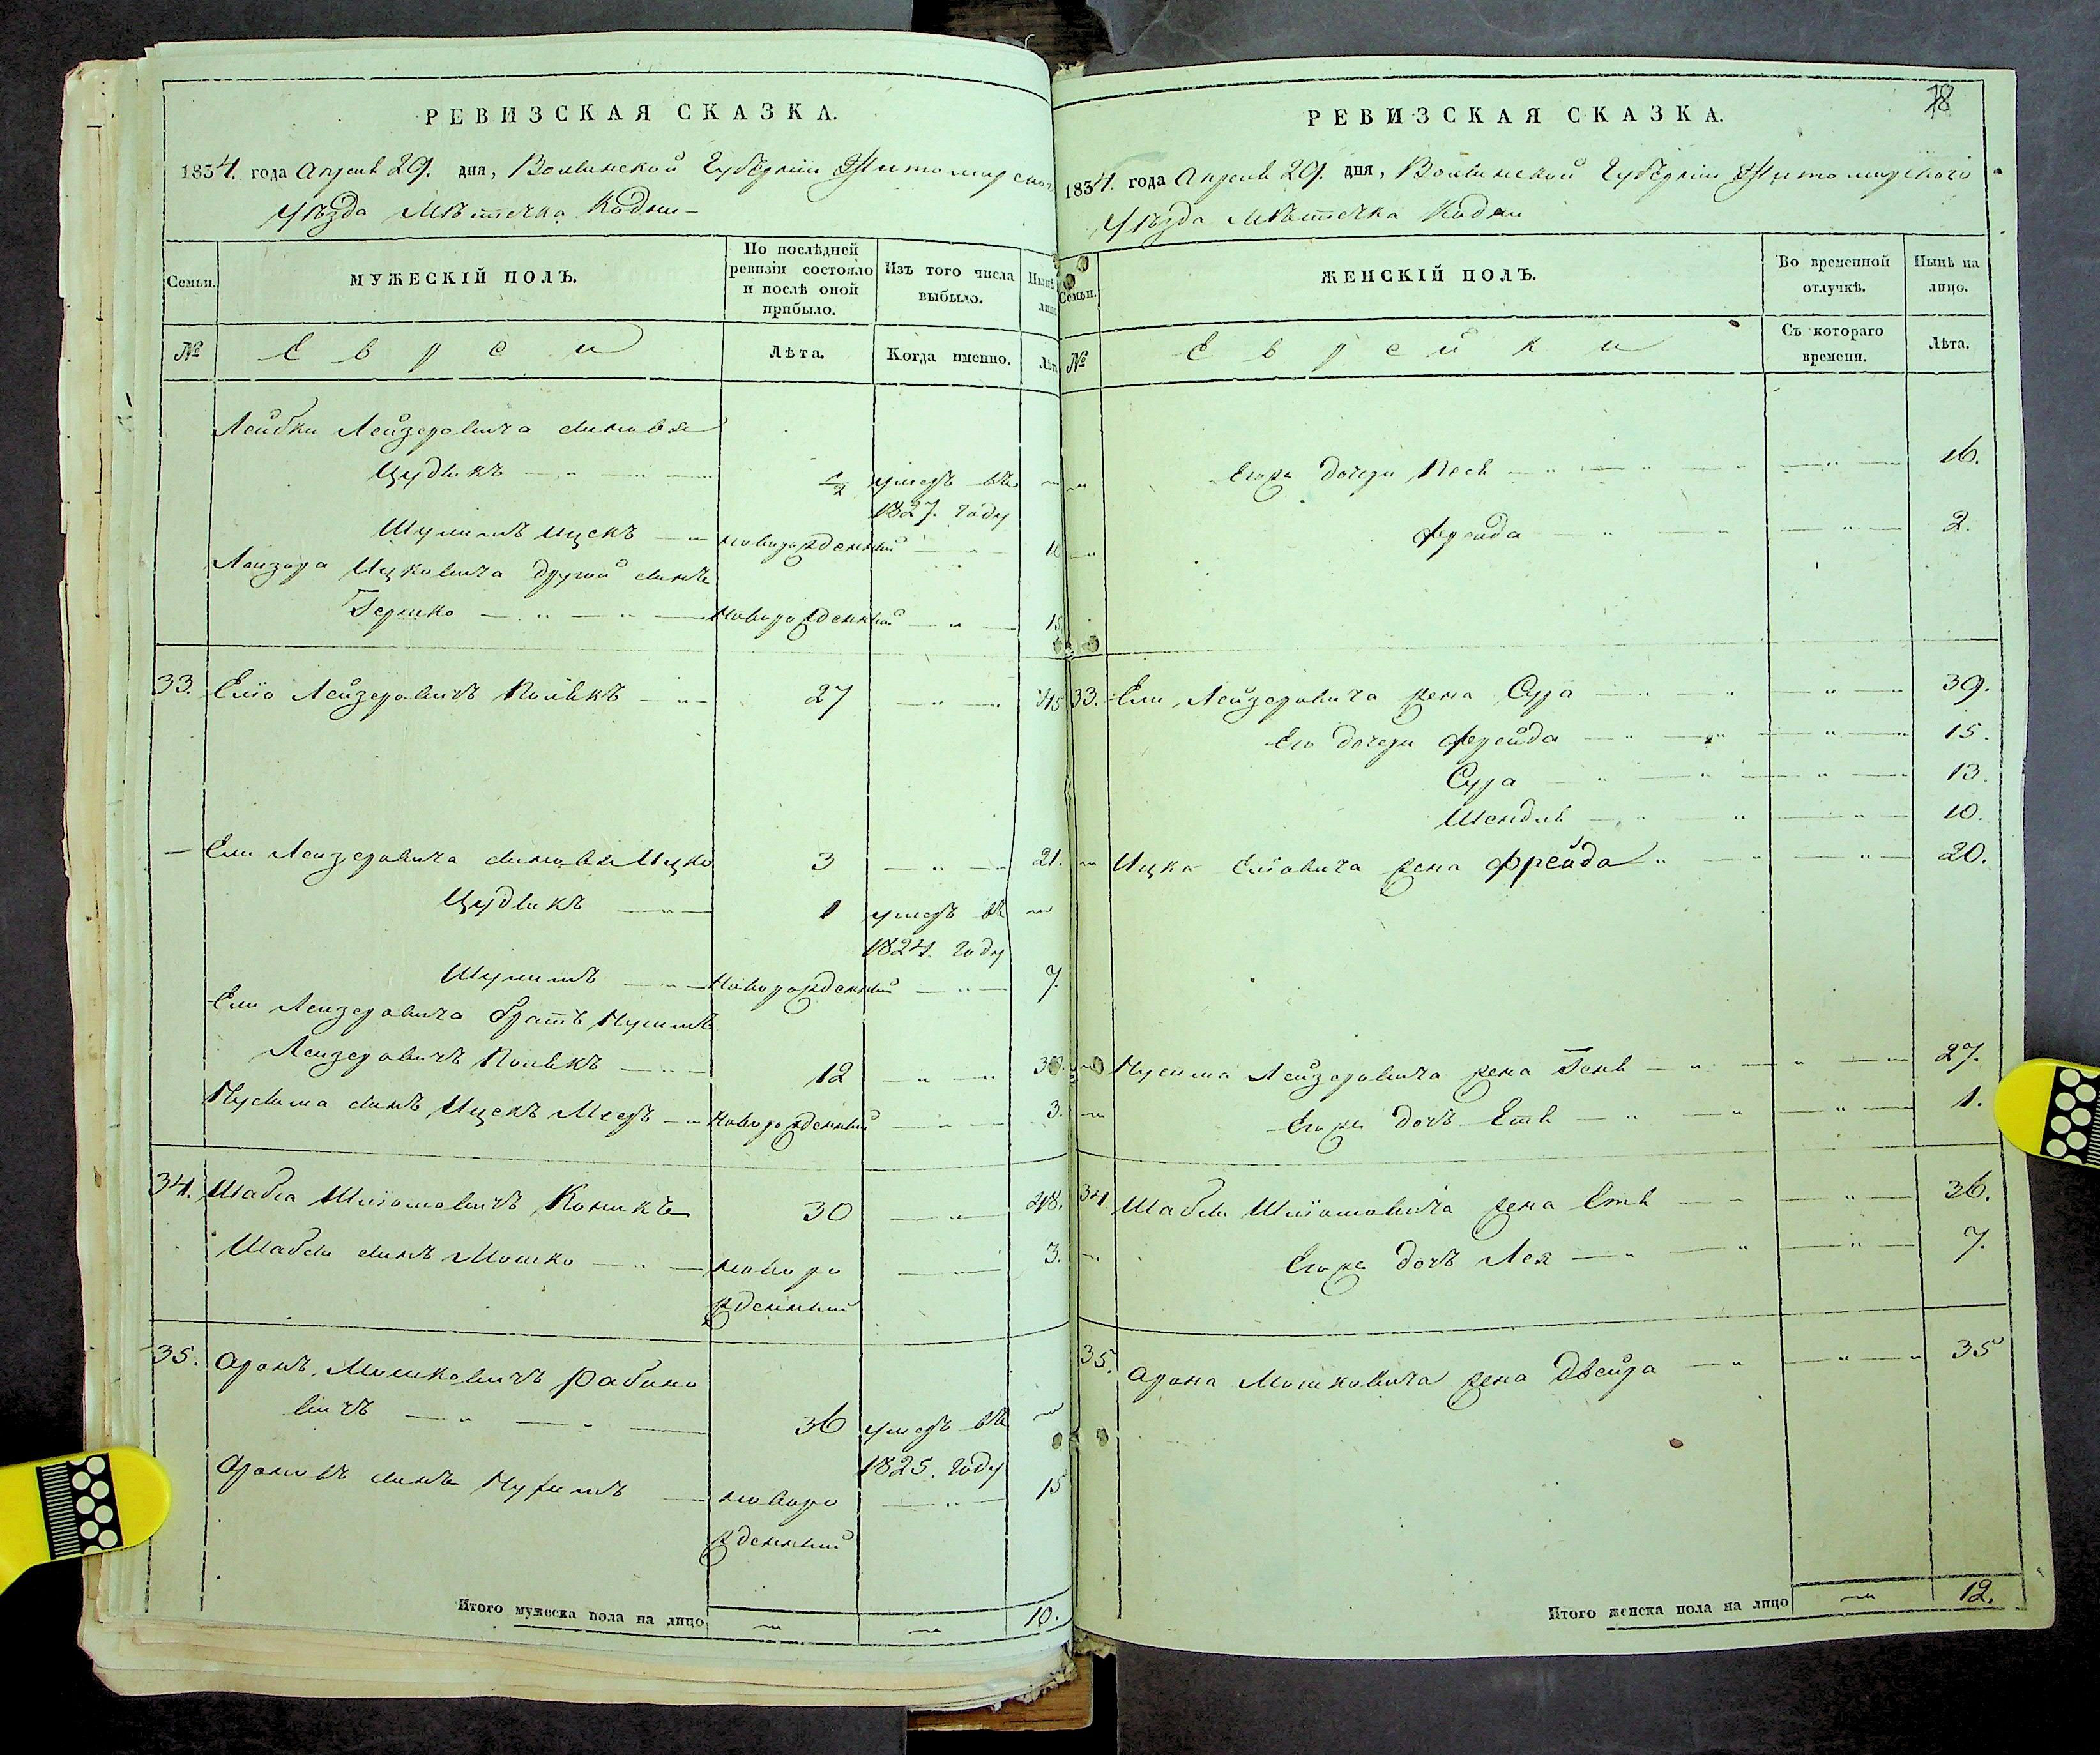 РЕВИЗСКАЯ СКАЗКА.
1834. года Апреля 29. дня, Волынской Губерніи Житомирского
Уѣзда Мѣстечка Кодни
Семьи.
МУЖЕСКІЙ ПОЛЪ.
По послѣдней ревизіи состояло и послѣ оной прибыло.
Изъ того числа выбыло.
Нынѣ
№
Евреи
Лѣта.
Когда именно.
Лѣта
Лейбки Лейзеровича сыновья
Цудикъ — " — 1/2 умеръ въ
1827. году
Шулимъ Ицекъ — новорожденный — " — 10
Лейзора Ицковича другой сынъ
Гершко — " — " — новорожденный — " — 15
33. Еліо Лейзеровичъ Полякъ — " — 27 — " — 45
Ели Лейзеровича сыновья Ицко 3 — " — 21.
Цудикъ — " — 1 умеръ въ
1824. году
Шулимъ — " — новорожденный — " — 7.
Ели Лейзеровича братъ Нусимъ
Лейзеровичъ Полякъ — " — 12 — " —
Нусима сынъ Ицекъ Мееръ — " новорожденный — " — 3.
34. Шабса Шліомовичъ 30 — " — 48.
Шабсы сынъ Мошко — " — новоро — " — 3.
жденный
35. Аронъ Мошковичъ Рабино
вичъ — " — " — 36 умеръ въ
1825. году
сынъ — новоро — " — 15
жденный
Итого мужеска пола на лицо 10.
78
РЕВИЗСКАЯ СКАЗКА.
1834. года Апреля 29. дня, Волынской Губерніи Житомирского
Уѣзда Мѣстечка Кодни
Семьи.
ЖЕНСКІЙ ПОЛЪ.
Во временной отлучкѣ.
Нынѣ на лицо.
№
Еврейки
Съ котораго времени.
Лѣта.
Егожъ дочери Песя — " — " — " — 16.
Фрейда — " — " — " — 2.
33. Ели Лейзеровича жена Сура — " — " — " — 39.
Его дочери Фрейда — " — " — " — 15.
Сура — " — " — " — 13.
Шендля — " — " — " — 10.
Ицка Еліовича жена Фрейда — " — " — " — 20.
Нусима Лейзеровича жена Геня — " — " — " — 27.
Егожъ дочь Етя — " — " — " — 1.
34. Шабсы Шліомовича жена Етя — " — " — 36.
Егожъ дочь Лея — " — " — " — 7.
35. Арона Мошковича жена Двейра — " — " — 35
Итого женска пола на лицо 12.